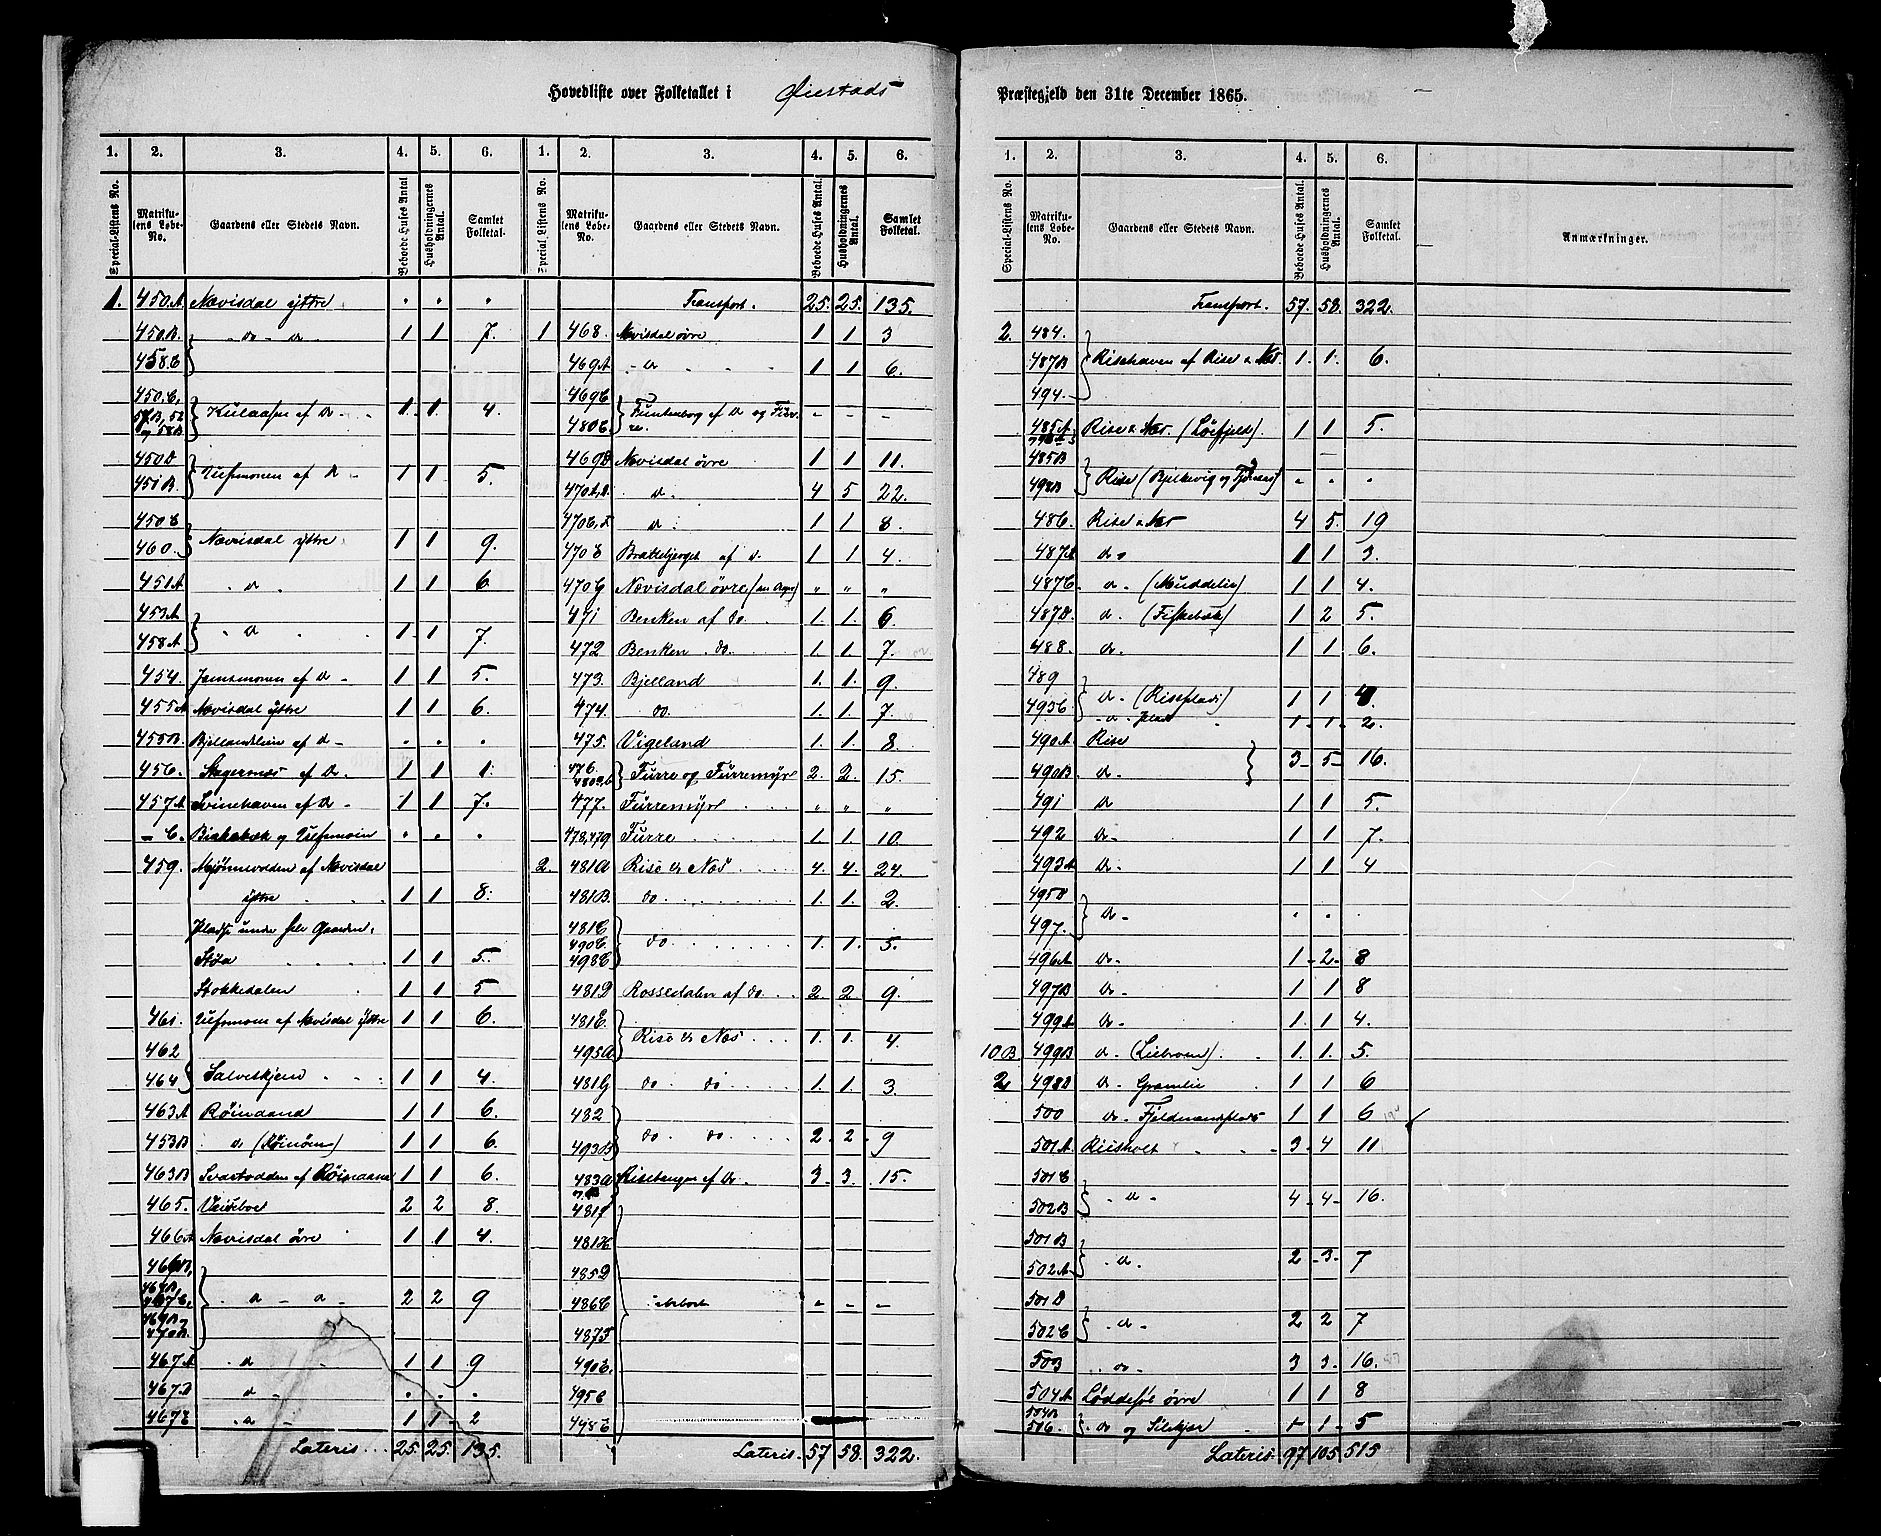 Hovedliste over Folketallet i Øiestads Præstegjeld den 31te December 1865.
1. 2. 3. 4. 5. 6. 1. 2. 3. 4. 5. 6.
Special-Listens No. Matrikulens Løbe-No. Gaardens eller Stedets Navn. Beboede Huses Antal. Husholdningernes Antal. Samlet Folketal. Special-Listens No. Matrikulens Løbe-No. Gaardens eller Stedets Navn. Beboede Huses Antal. Husholdningernes Antal. Samlet Folketal.
1. 450.A Nævisdal yttre " " "
450.B. - do - do 1 1 7.
458.C
450.C,
57B, 52 og 58B Kulaasen af Do - 1. 1. 4.
450D
451B. Ulfsmonen af Do - 1 1 5.
450E
460. Nævisdal yttre 1 1 9.
451A " do " 1 1 6.
453A
458A " do 1 1 7.
454. Jomsmonen af Do - 1 1 5.
455A Nævisdal yttre 1 1 6.
455B. Bjellandslien af Do - " " "
456. Stegernæs af Do. 1 1 1.
457A Svinehaven af Do - 1 1 7.
- C. Birkebæk og Ulfsmoen " " "
459. Mjønnevolden af Nævisdal
yttre 1 1 8.
Pladse under hele Gaarden.
Støa 1 1 5.
Stokkedalen 1 1 5
461. Ulfsmoen af Nævisdal yttre 1 1 6.
462
464 Salveskjern 1 1 4.
463.A Røinaand 1 1 6.
453B do (Røinøen) 1 1 6.
463B Svartodden af Røinaand 1 1 6.
465. Veiseboe 2 2 8.
466A Nævisdal øvre 1 1 4.
466B,
467B,
467C,
469B,
470B. " do - do - 2 2 9
467.A " do 1 1 9
467.D do - . . .
467E " do - 1 1 - 2
Lateris . . . 25. 25. 135.
Transport. 25. 25. 135.
1 468. Nævisdal øvre 1 1 3
469A - do 1 1 6.
469C
480C Funtenbog af Do og Furre. - - -
469D Nævisdal øvre 1 1 11.
470A,D. do. 4 5 22.
470E,F do. 1 1 8.
470C Brattebjerget af do. 1 1 4.
470G Nævisdal øvre " " "
471 Benken af do. 1. 1. 6.
472 Benken do. 1. 1. 7.
473. Bjelland 1. 1. 9.
474. do. 1. 1. 7.
475. Vigeland 1. 1. 8.
476.
480A,B Furre og Furremyr 2. 2. 15.
477. Furremyr " " "
478,479 Furre 1. 1. 10.
2. 481A Rise & Næs 4. 4. 24.
481B. do. 1. 1. 2.
481C
490C
498C do. 1. 1. 5.
481D Rossedalen af do. 2. 2. 9.
481E.
495A Rise & Næs 1. 1. 4.
481G do do. 1. 1. 3.
482
493B do do. 2. 2. 9
483A Risehaugen af Do. 3. 3. 15.
481F
481H
485D
486C ubeboet - - -
487F
490E.
495C
498E
Lateris. 57 58. 322.
1. 2. 3. 4. 5. 6.
Special-Listens No. Matrikulens Løbe-No. Gaardens eller Stedets Navn. Beboede Huses Antal. Husholdningernes Antal. Samlet Folketal. Anmærkninger.
Transport. 57. 58. 322.
2. 484.
487B Risehaven af Rise & Næs. 1. 1. 6.
494.
485A Rise & Næs. (Løefjeld). 1 1 5.
485B
498B Rise (Birkevig og Fjdnæs) " " "
486. Rise & Næs 4 5. 19
487A do. 1 1 3.
487C. do. (Muddelie) 1 1 4.
487D. do. (Fiskebæk) 1 2 5.
488. do. 1 1 6.
489
493C do. (Riseplads) 1 1 4.
- do. Plads 1 - 1 - 2.
490A. Rise
490B do. 3 - 5 - 16.
491 do 1 1 5.
492 do. 1 1 7.
493A do. 1 1 4
495D
497. do - . . .
496A do. 1 - 2 - 8
497B do - 1 1 8
499A do - 1. 1 4.
10B 499B do. (Liebroen). 1. 1. 5.
2 498D do. Gramlie 1 1 6
500 do. Fjeldmandsplads 1 1 6
501A Riisholt 3 - 4 11
501C
502B " do - 4 - 4 - 16.
501B
502A " do. 2 - 3 - 7
501D
502C " do - 2 2 7
503 " do. 3 3. 16.
504A Løddesøl øvre 1 1 8
504B
506. do og Silekjær 1 - 1 - 5
Lateris. 97 105 515